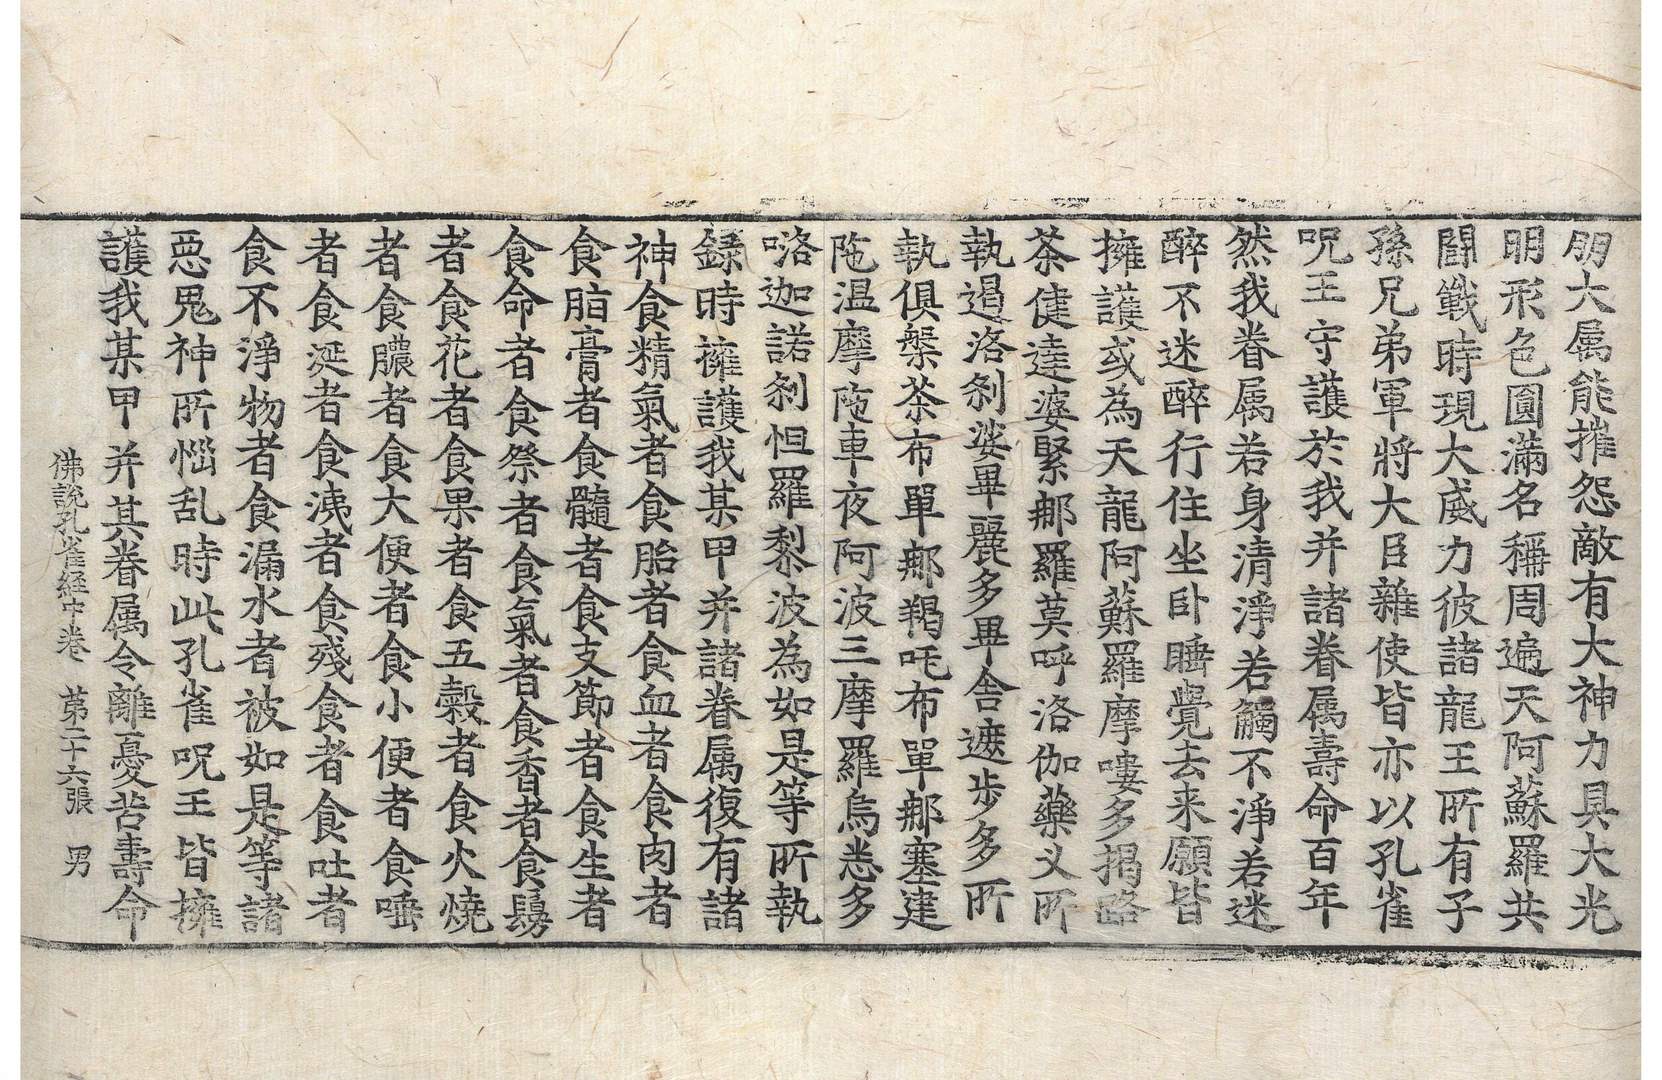 朋大属能摧怨敵有大神力具大光
明形色圓滿名稱周遍天阿蘇羅共
闘戰時現大威力彼諸龍王所有子
孫兄弟軍將大臣雜使皆亦以孔雀
呪王守護於我并諸眷属壽命百年
然我眷属若身清淨若觸不淨若迷
醉不迷醉行住坐卧睡覺去来願皆
擁護或為天龍阿蘇羅摩嘍多揭路
茶健達婆緊那羅莫呼洛伽藥义所
執遏洛刹娑畢麗多畢舍遮步多所
執俱槃茶布單那羯吒布單那塞建
陁温摩陁車夜阿波三摩羅烏悉多
咯迦諾刹怛羅黎波為如是等所執
録時擁護我某甲并諸眷属復有諸
神食精氣者食胎者食血者食肉者
食脂膏者食髓者食支節者食生者
食命者食祭者食氣者食香者食鬘
者食花者食果者食五穀者食火燒
者食膿者食大便者食小便者食唾
者食涎者食洟者食殘食者食吐者
食不淨物者食漏水者被如是等諸
惡鬼神所惱乱時此孔雀呪王皆擁
護我某甲并其眷属令離憂苦壽命
佛說孔雀経中卷 苐二十六張 男